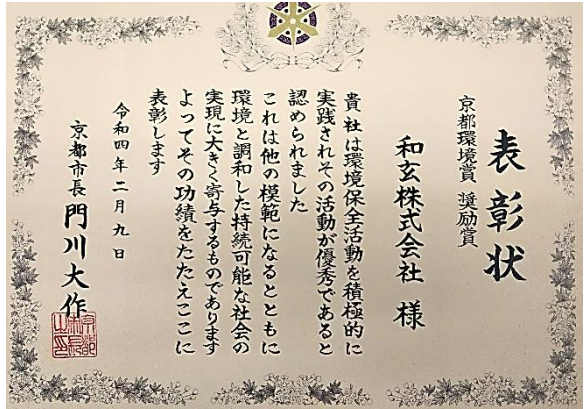 表彰状
京都環境賞 奨励賞
和玄株式会社 様
貴社は環境保全活動を積極的に
実践されその活動が優秀であると
認められました
これは他の模範になるとともに
環境と調和した持続可能な社会の
実現に大きく寄与するものであります
よってその功績をたたえここに
表彰します
令和四年二月九日
京都市長 門川大作